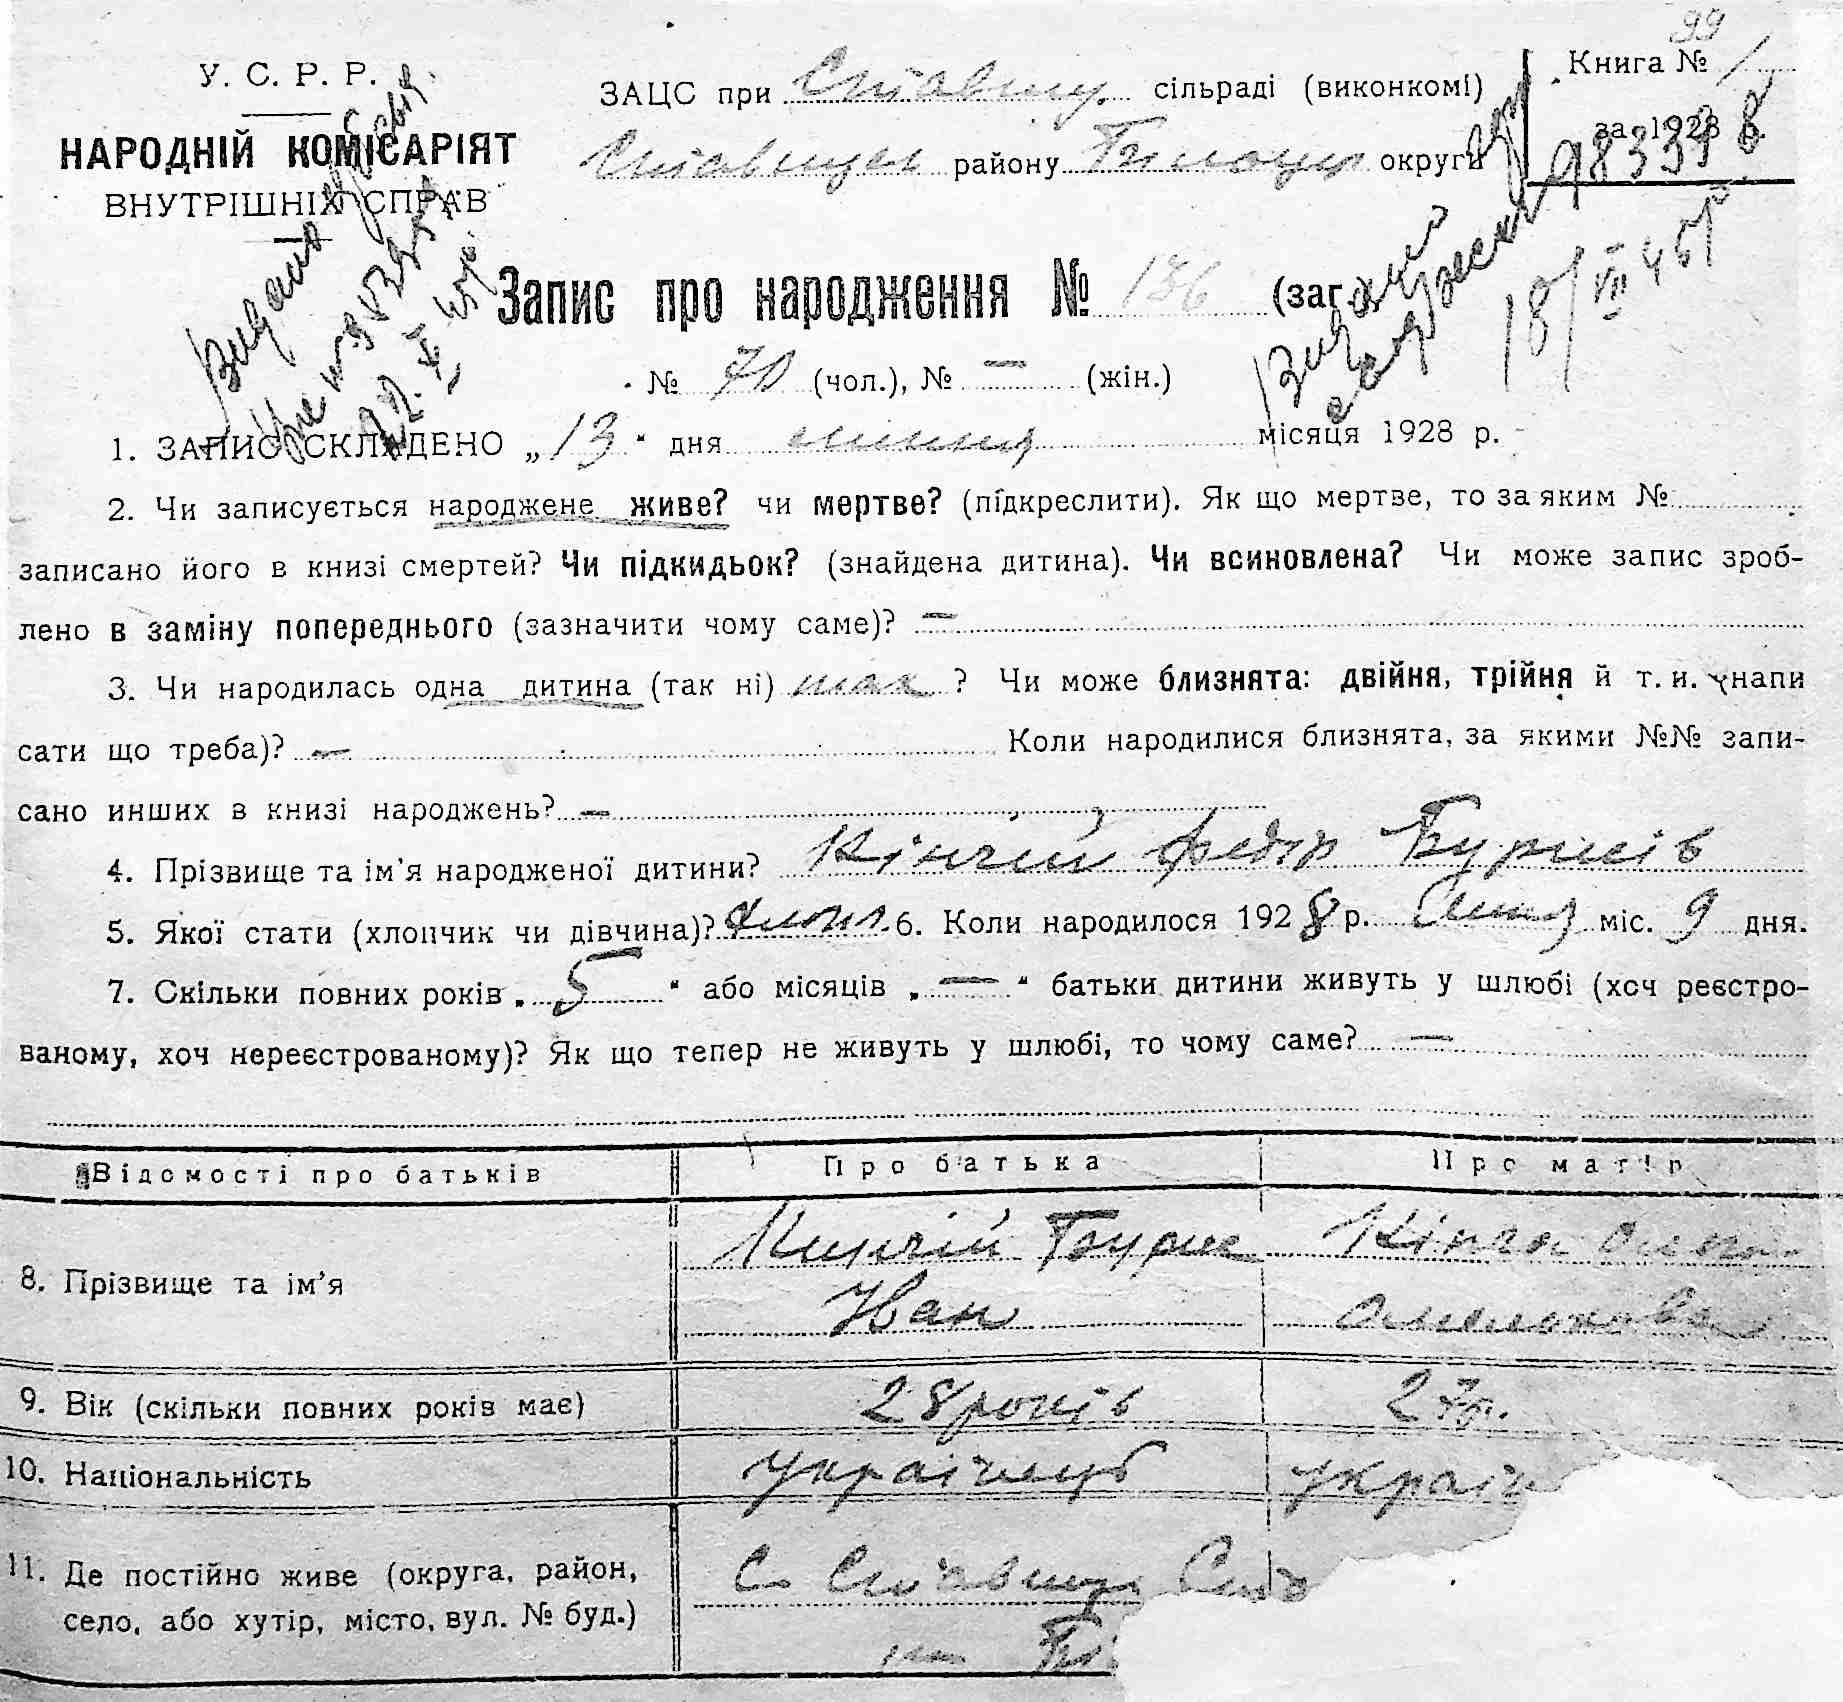 99
У. С. Р. Р.
НАРОДНІЙ КОМІСАРІЯТ
ВНУТРІШНІХ СПРАВ
ЗАЦС при Ставищ. сільраді (виконкомі)
Ставищен району Білоцер округи
Книга № 1
за 1928 р.
983348
18/VIII 45р
Запис про народження № 136 (заг.
№ 70 (чол.), № — (жін.)
1. ЗАПИС СКЛАДЕНО „13“ дня липня місяця 1928 р.
2. Чи записується народжене живе? чи мертве? (підкреслити). Як що мертве, то за яким №
записано його в книзі смертей? Чи підкидьок? (знайдена дитина). Чи всиновлена? Чи може запис зроб-
лено в заміну попереднього (зазначити чому саме)? —
3. Чи народилась одна дитина (так ні) так ? Чи може близнята: двійня, трійня й т. и. (напи
сати що треба)? — Коли народилися близнята, за якими №№ запи-
сано инших в книзі народжень? —
4. Прізвище та ім'я народженої дитини? Кінчій Федір Бурисів
5. Якої стати (хлопчик чи дівчина)? хлопч. 6. Коли народилося 1928 р. Липня міс. 9 дня.
7. Скільки повних років „5“ або місяців „—“ батьки дитини живуть у шлюбі (хоч реєстро-
ваному, хоч нереєстрованому)? Як що тепер не живуть у шлюбі, то чому саме? —
Відомості про батьків Про батька Про матір
8. Прізвище та ім'я Кинчій Бурис Кінча
Іван Омельхова
9. Вік (скільки повних років має) 28 років 27 р.
10. Національність українець україн
11. Де постійно живе (округа, район, С. Ставища
село, або хутір, місто, вул. № буд.)